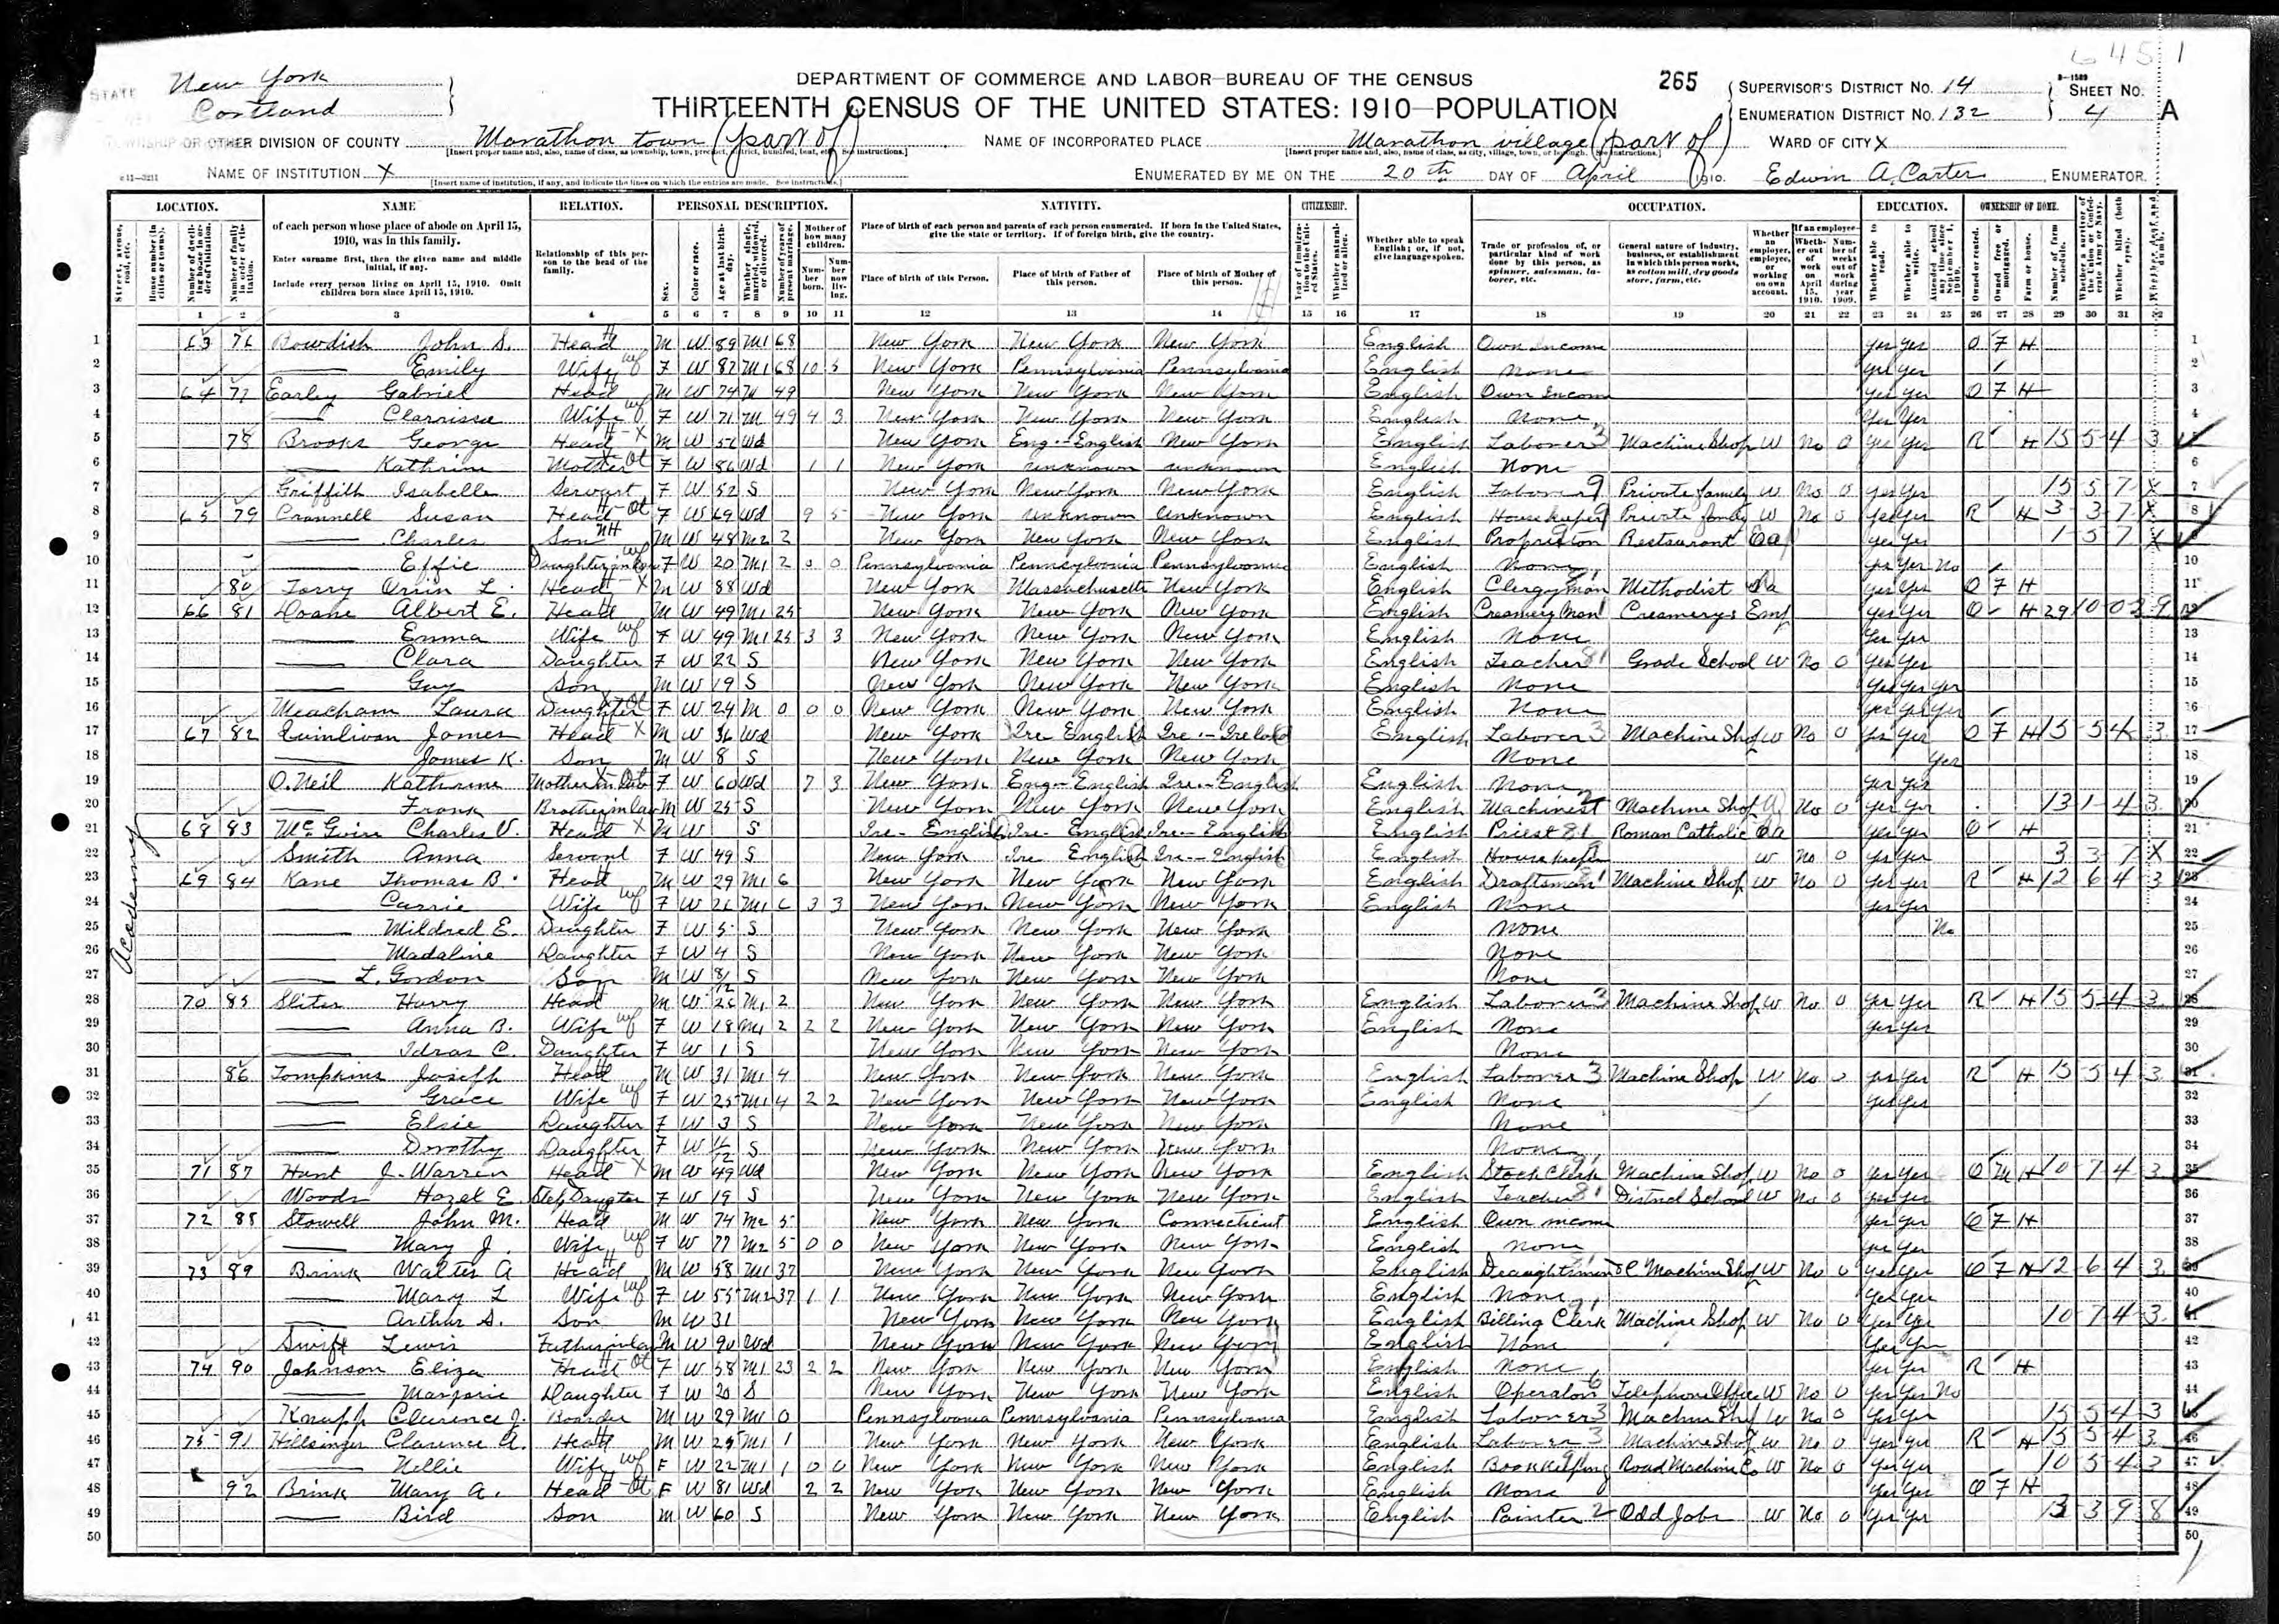 6451
STATE New York
Cortland
TOWNSHIP OR OTHER DIVISION OF COUNTY Marathon town (part of)
[Insert proper name and, also, name of class, as township, town, precinct, district, hundred, beat, etc. See instructions.]
NAME OF INSTITUTION X
[Insert name of institution, if any, and indicate the lines on which the entries are made. See instructions.]
DEPARTMENT OF COMMERCE AND LABOR—BUREAU OF THE CENSUS
THIRTEENTH CENSUS OF THE UNITED STATES: 1910—POPULATION
265
NAME OF INCORPORATED PLACE Marathon village (part of)
[Insert proper name and, also, name of class, as city, village, town, or borough. See instructions.]
ENUMERATED BY ME ON THE 20th DAY OF April 1910.
SUPERVISOR'S DISTRICT No. 14
ENUMERATION DISTRICT No. 132
SHEET No. 4 A
WARD OF CITY X
Edwin A. Carter ENUMERATOR.
LOCATION. NAME RELATION. PERSONAL DESCRIPTION. NATIVITY. CITIZENSHIP. OCCUPATION. EDUCATION. OWNERSHIP OF HOME.
of each person whose place of abode on April 15, 1910, was in this family.
Enter surname first, then the given name and middle initial, if any.
Include every person living on April 15, 1910. Omit children born since April 15, 1910.
Relationship of this person to the head of the family.
Place of birth of each person and parents of each person enumerated. If born in the United States, give the state or territory. If of foreign birth, give the country.
Place of birth of this Person. Place of birth of Father of this person. Place of birth of Mother of this person.
Whether able to speak English; or, if not, give language spoken.
Trade or profession of, or particular kind of work done by this person, as spinner, salesman, laborer, etc.
General nature of industry, business, or establishment in which this person works, as cotton mill, dry goods store, farm, etc.
1 2 3 4 5 6 7 8 9 10 11 12 13 14 15 16 17 18 19 20 21 22 23 24 25 26 27 28 29 30 31
Academy
1 63 76 Bowdish John S. Head M W 89 M1 68 New York New York New York English Own Income yes yes O F H
2 Emily Wife F W 87 M1 68 10 5 New York Pennsylvania Pennsylvania English None yes yes
3 64 77 Earley Gabriel Head M W 74 M 49 New York New York New York English Own Income yes yes O F H
4 Clarrissa Wife F W 71 M 49 4 3 New York New York New York English None yes yes
5 78 Brooks George Head M W Wd New York Eng.-English New York English Laborer Machine Shop W No 0 yes yes R H 15 5 4 3
6 Mother F W 86 Wd 1 1 New York unknown unknown English None
7 Griffith Isabelle Servant F W 52 S New York New York New York English Laborer Private family W No 0 yes yes 15 5 7 X
8 65 79 Crannell Susan Head F W 69 Wd 9 5 New York unknown unknown English Housekeeper Private family W No 0 yes yes R H 3 3 7 X
9 Charles Son M W 48 M2 2 New York New York New York English Restaurant yes yes
10 Effie Daughter in law F W 20 M1 2 0 0 Pennsylvania Pennsylvania Pennsylvania English None yes yes No
11 80 Torry Orrin L. Head M W 88 Wd New York Massachusetts New York English Clergyman Methodist yes yes O F H
12 66 81 Doane Albert E. Head M W 49 M1 25 New York New York New York English Creamery Man Creamerys Emp yes yes O H
13 Emma Wife F W 49 M1 25 3 3 New York New York New York English None yes yes
14 Clara Daughter F W 22 S New York New York New York English Teacher Grade School W No 0 yes yes
15 Guy Son M W 19 S New York New York New York English None yes yes yes
16 Meacham Laura Daughter F W 24 M 0 0 0 New York New York New York English None yes yes yes
17 67 82 Quinlivan James Head M W 36 Wd New York Ire English English Laborer Machine Shop W No 0 yes yes O F H 15 5 4 3
18 James K. Son M W 8 S New York New York New York None yes
19 O.Neil Kathrine Mother in law F W 60 Wd 7 3 New York Eng-English Ire-English English None yes yes
20 Frank Brother in law M W 25 S New York New York New York English Machinest Machine Shop No 0 yes yes 13 1 4 3
21 68 83 McGuire Charles V. Head M W S Ire-English Ire-English Ire-English English Priest Roman Catholic yes yes O H
22 Smith Anna Servant F W 49 S New York Ire English Ire-English English Housekeeper W No 0 yes yes 3 3 7 X
23 69 84 Kane Thomas B. Head M W 29 M1 6 New York New York New York English Draftsman Machine Shop W No 0 yes yes R H 12 6 4 3
24 Carrie Wife F W 26 M1 6 3 3 New York New York New York English None yes yes
25 Mildred E. Daughter F W 5 S New York New York New York None No
26 Madaline Daughter F W 4 S New York New York New York None
27 L. Gordon Son M W 8/12 S New York New York New York None
28 70 85 Sliter Harry Head M W 26 M1 2 New York New York New York English Laborer Machine Shop W No 0 yes yes R H 15 5 4 3
29 Anna B. Wife F W 18 M1 2 2 2 New York New York New York English None yes yes
30 Daughter F W 1 S New York New York New York None
31 86 Tompkins Joseph Head M W 31 M1 4 New York New York New York English Laborer Machine Shop W No 0 yes yes R H 15 5 4 3
32 Grace Wife F W 25 M1 4 2 2 New York New York New York English None yes yes
33 Elsie Daughter F W 3 S New York New York New York None
34 Dorothy Daughter F W S New York New York New York None
35 71 87 Hunt J. Warren Head M W 49 Wd New York New York New York English Stock Clerk Machine Shop W No 0 yes yes O M H 10 7 4 3
36 Woods Hazel E. Step Daugter F W 19 S New York New York New York English Teacher District School W No 0 yes yes
37 72 88 Stowell John M. Head M W 74 M2 5 New York New York Connecticut English Own income yes yes O F H
38 Mary J. Wife F W 77 M2 5 0 0 New York New York New York English None yes yes
39 73 89 Brink Walter A Head M W 58 M1 37 New York New York New York English Draughtsman Machine Shop W No 0 yes yes O F H 12 6 4 3
40 Mary L Wife F W 55 M2 37 1 1 New York New York New York English None yes yes
41 Arthur S. Son M W 31 New York New York New York English Billing Clerk Machine Shop W No 0 yes yes 10 7 4 3
42 Swift Lewis Father in law M W 90 Wd New York New York New York English None yes yes
43 74 90 Johnson Eliza Head F W 58 M1 23 2 2 New York New York New York English None yes yes R H
44 Marjorie Daughter F W 20 S New York New York New York English Operator Telephone Office W No 0 yes yes No
45 Knapp Clarence J. Boarder M W 29 M1 0 Pennsylvania Pennsylvania Pennsylvania English Laborer Machine Shop W No 0 yes yes 15 5 4 3
46 75 91 Hilsinger Clarence A. Head M W 25 M1 1 New York New York New York English Laborer Machine Shop W No 0 yes yes R H 15 5 4 3
47 Nellie Wife F W 22 M1 1 0 0 New York New York New York English Bookkeeping Road Machine Co W No 0 yes yes 10 5 4 3
48 92 Brink Mary A. Head F W 81 Wd 2 2 New York New York New York English None yes yes O F H
49 Bird Son M W 60 S New York New York New York English Painter Odd Jobs W No 0 yes yes 13 3 9 8
50